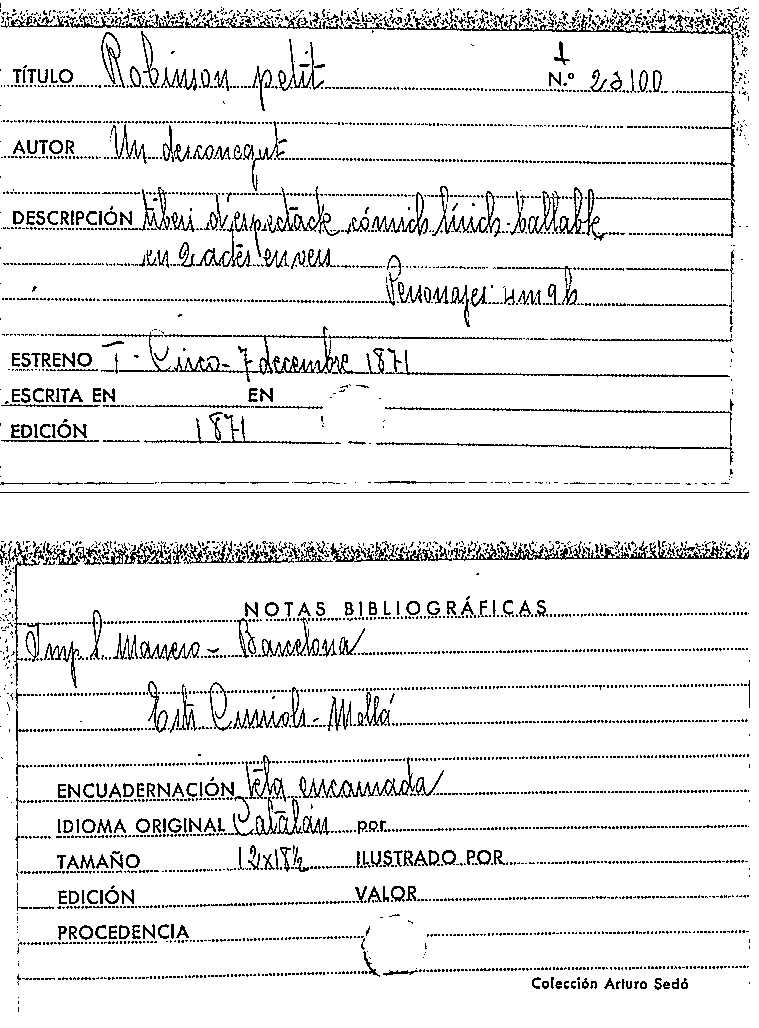 TÍTULO Robinson petit
N.º 23100
AUTOR Un desconegut
DESCRIPCIÓN tiberi d'espectacle cómich lírich-ballable
en 2 actes en vers
Personajes 4 m 9 h
ESTRENO T. Circo - 7 decembre 1871
ESCRITA EN EN
EDICIÓN 1871
NOTAS BIBLIOGRÁFICAS
Imp S. Manero - Barcelona
ENCUADERNACIÓN tela encarnada
IDIOMA ORIGINAL Catalán por
TAMAÑO 12x18½ ILUSTRADO POR
EDICIÓN VALOR
PROCEDENCIA
Colección Arturo Sedó